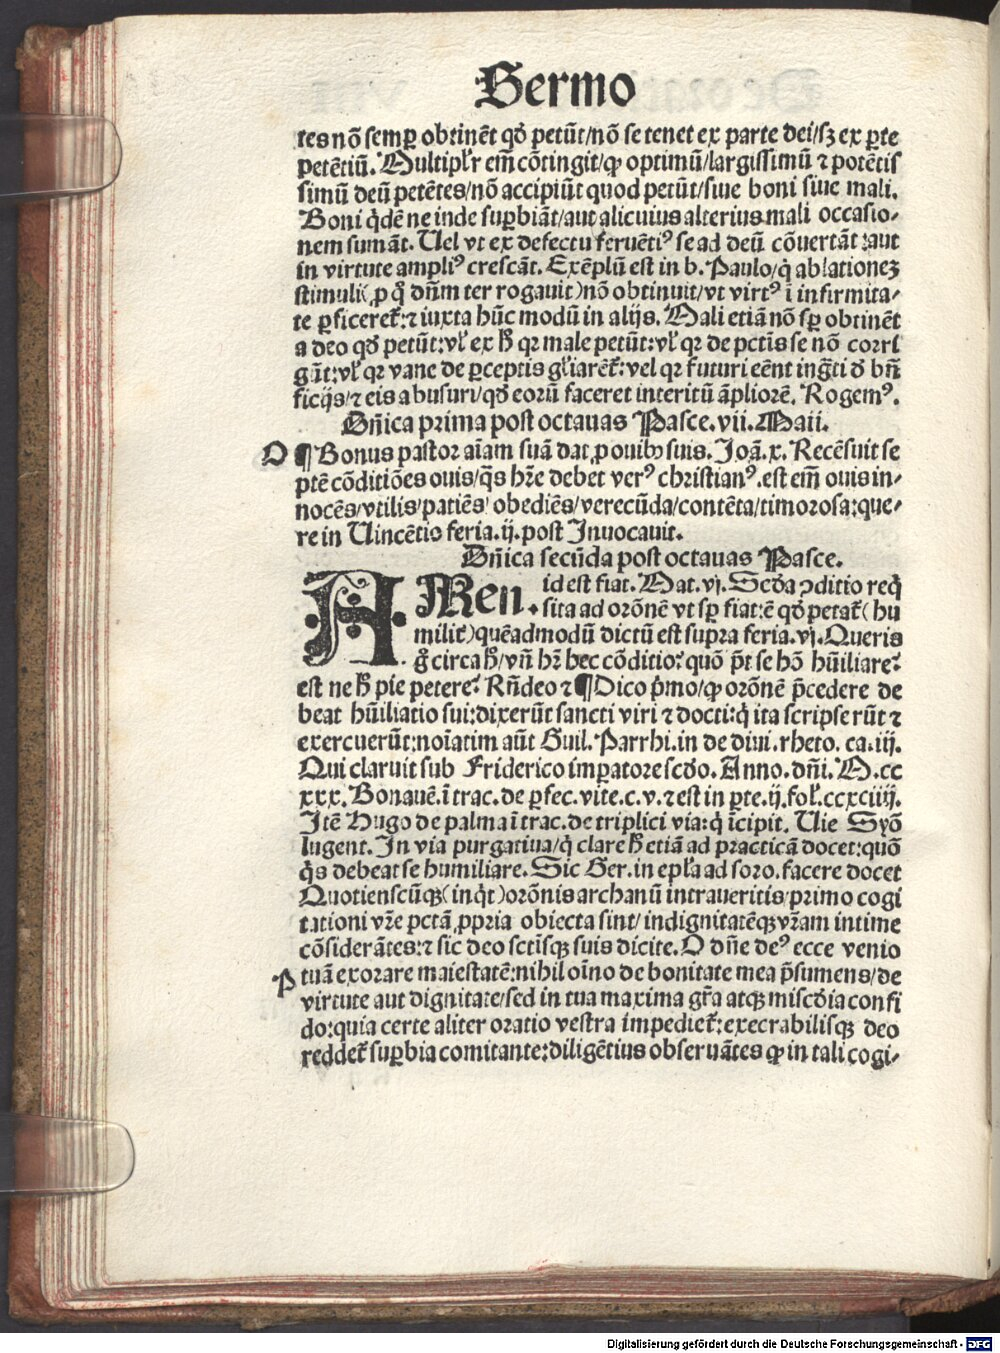 Sermo
tes nõ semꝑ obtinẽt qđ petũt/nõ se tenet ex parte dei/sꝫ ex ꝑte
petẽtiũ. Multiplr̃ em̃ cõtingit/ꝙ optimũ/largissimũ ⁊ potẽtis
simũ deũ petẽtes/nõ accipiũt quod petũt/siue boni siue mali.
Boni q̇dẽ ne inde suꝑbiãt/aut alicuius alterius mali occasio-
nem sumãt. Uel vt ex defectu feruẽtiꝰ se ad deũ cõuertãt:aut
in virtute ampliꝰ crescãt. Exẽplũ est in b. Paulo/q̇ ablationeꝫ
stimuli(ꝓ q̊ dñm ter rogauit)nõ obtinuit/vt virtꝰ ĩ infirmita-
te ꝑficeret᷑:⁊ iuxta hũc modũ in alijs. Mali etiã nõ sꝑ obtinẽt
a deo qđ petũt:vl̉ ex h̊ qꝛ male petũt:vl̉ qꝛ de pctĩs se nõ corri
gũt:vl̉ qꝛ vane de ꝑceptis gl̉iarẽt᷑:vel qꝛ futuri eẽnt ingr̃ti đ bñ
ficijs/⁊ eis abusuri/qđ eorũ faceret interitũ ãpliorẽ. Rogemꝰ.
Dñica prima post octauas Pasce.vii.Maii.
O ¶Bonus pastor aĩam suã dat ꝓ ouibꝰ suis. Joã.x. Recẽsuit se
ptẽ cõditiões ouis/q̃s hr̃e debet verꝰ christianꝰ.est em̃ ouis in-
nocẽs/vtilis/patiẽs/obediẽs/verecũda/contẽta/timorosa:que-
re in Uincẽtio feria.ij.post Inuocauit.
Dñica secũda post octauas Pasce.
AMen. id est fiat. Mat.vj. Scđa ↄditio req̇
sita ad orõnẽ vt sꝑ fiat:ẽ qđ petat᷑(hu
milit᷑)quẽadmodũ dictũ est supra feria.vj. Queris
g̊ circa h̊/vñ hꝫ hec cõditio? quõ p̃t se hõ hũiliare?
est ne h̊ pie petere? Rñdeo ⁊ ¶Dico p̃mo/ꝙ orõnẽ p̃cedere de
beat hũiliatio sui:dixerũt sancti viri ⁊ docti:q̇ ita scripserũt ⁊
exercuerũt:noĩatim aũt Guil. Parrhi.in de diui.rheto. ca.iij.
Qui claruit sub Friderico imꝑatore scđo. Anno.dñi.M.cc
xxx. Bonauẽ.ĩ trac.de ꝑfec.vite.c.v.⁊ est in ꝑte.ij.fol̉.ccxciiij.
Itẽ Hugo de palma ĩ trac.de triplici via:q̇ ĩcipit. Uie Syõ
lugent. In via purgatiua/q̇ clare h̊ etiã ad practicã docet:quõ
q̇s debeat se humiliare. Sic Ger.in epl̉a ad soro.facere docet
Quotienscũqꝫ(inq̇t)orõnis archanũ intraueritis/primo cogi
tationi vr̃e pctã ꝓpria obiecta sint/indignitatẽqꝫ vr̃am intime
cõsiderãtes:⁊ sic deo sctĩsqꝫ suis dicite. O dñe deꝰ ecce venio
P tuã exorare maiestatẽ:nihil oĩno de bonitate mea p̃sumens/de
virtute aut dignitate/sed in tua maxima gr̃a atqꝫ miscđia confi
do:quia certe aliter oratio vestra impediet᷑:execrabilisqꝫ deo
reddet᷑ suꝑbia comitante:diligẽtius obseruãtes ꝙ in tali cogi-
Digitalisierung gefördert durch die Deutsche Forschungsgemeinschaft - DFG